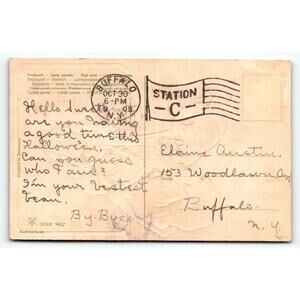 Postkarte Carte postale Post card
BUFFALO
OCT 30
6-PM
1909
N.Y.
STATION
C
Hello Sweets
are you having
a good time this
Hallowe'en.
Can you guess
who I am?
I'm your bestest
beau.
By-Bye
Elaine Austin.
153 Woodlawn Av.
Buffalo.
N.Y.
SERIE